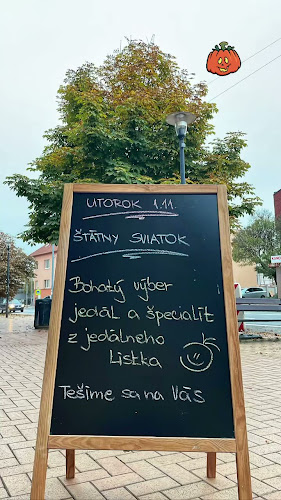 UTOROK 1.11.
ŠTÁTNY SVIATOK
Bohatý výber
jedál a špecialít
z jedálneho
Lístka
Tešíme sa na Vás